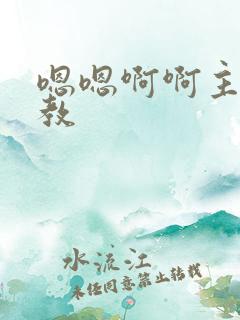 嗯嗯啊啊主
教
水流江
未经同意禁止转载